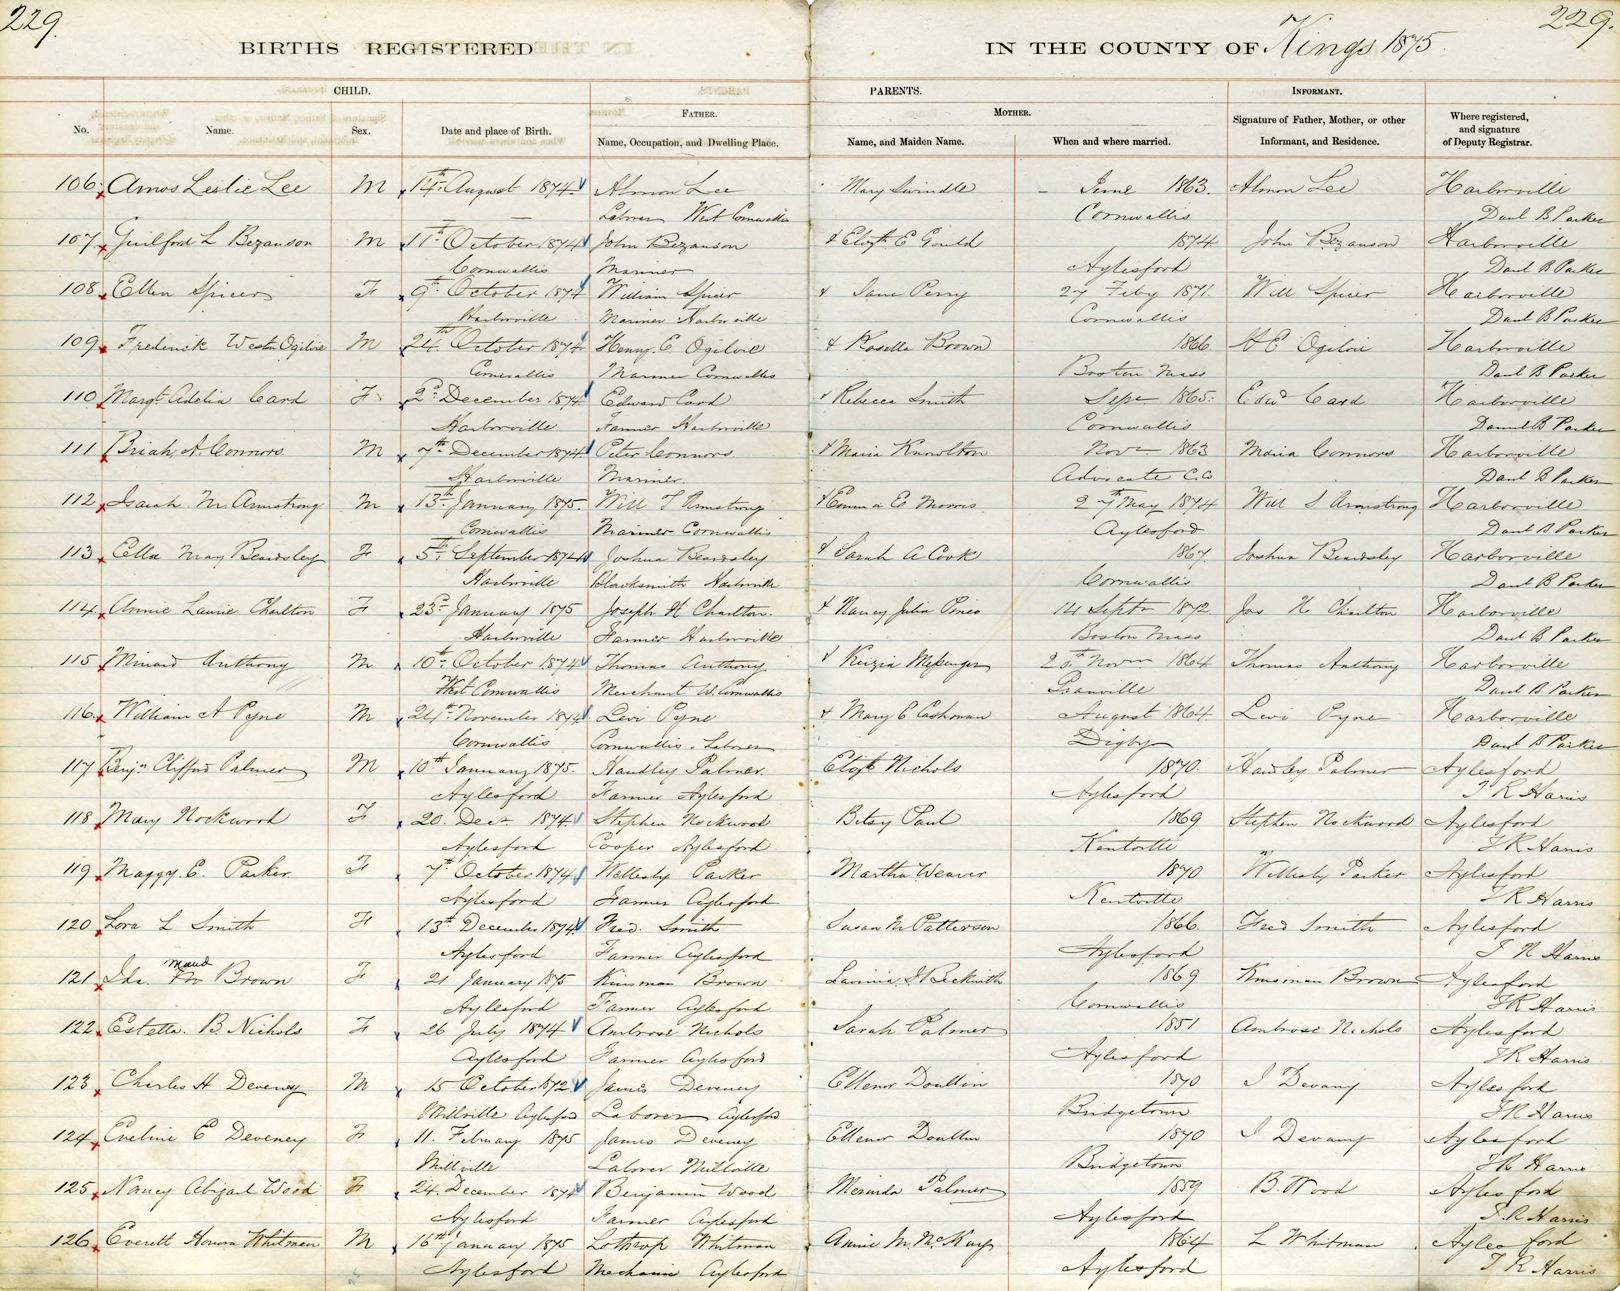 229.
229.
BIRTHS REGISTERED
IN THE COUNTY OF Kings 1875.
CHILD.
PARENTS.
INFORMANT.
No.
Name.
Sex.
Date and place of Birth.
FATHER.
Name, Occupation, and Dwelling Place.
MOTHER.
Name, and Maiden Name.
When and where married.
Signature of Father, Mother, or other
Informant, and Residence.
Where registered,
and signature
of Deputy Registrar.
106 Amos Leslie Lee M 14th August 1874 Almon Lee Mary Swindle June 1863. Almon Lee Harborville
Laborer West Cornwallis Cornwallis Danl B Parker
107 Guilford L Bezanson M 11th October 1874 John Bezanson & Elizth E Gould 1874 John Bezanson Harborville
Cornwallis Mariner Aylesford Danl B Parker
108 Ellen Spicer F 9th October 1874 William Spicer & Jane Perry 27 Feby 1871. Will Spicer Harborville
Harborville Mariner Harborville Cornwallis Danl B Parker
109 Frederick Weston Ogilvie M 24th October 1874 Henry E Ogilvie & Rosella Brown 1866 H E Ogilvie Harborville
Cornwallis Mariner Cornwallis Boston Mass Danl B Parker
110 Margt Adelia Card F 2d December 1874 Edward Card & Rebecca Smith Sept 1865. Edwd Card Harborville
Harborville Farmer Harborville Cornwallis Danl B Parker
111 Briah A. Connors M 7th December 1874 Peter Connors & Maria Knowlton Nov 1863 Maria Connors Harborville
Harborville Mariner Advocate C.C Danl B Parker
112 Isaiah M Armstrong M 13th January 1875. Will T Armstrong & Emma E Morris 27th May 1874 Will S Armstrong Harborville
Cornwallis Mariner Cornwallis Aylesford Danl B Parker
113 Ella May Beardsley F 5th September 1874 Joshua Beardsley & Sarah A Cook 1867. Joshua Beardsley Harborville
Harborville Blacksmith Harborville Cornwallis Danl B Parker
114 Annie Laurie Charlton F 23d January 1875 Joseph H Charlton. & Nancy Julia Pineo 14 Sept 1872. Jos H Charlton Harborville
Harborville Farmer Harborville Boston Mass Danl B Parker
115 Minard Anthony M 10th October 1874 Thomas Anthony & Keizia Messenger 20th Novr 1864 Thomas Anthony Harborville
West Cornwallis Merchant W. Cornwallis Granville Danl B Parker
116 William A Pyne M 24th November 1874 Levi Pyne & Mary E Cashman August 1864 Levi Pyne Harborville
Cornwallis Cornwallis. Laborer Digby Danl B Parker
117 Benjn Clifford Palmer M 10th January 1875. Handley Palmer Elizth Nichols 1870. Handley Palmer Aylesford
Aylesford Farmer Aylesford Aylesford T R Harris
118 Mary Nockwood F 20. Decr 1874 Stephen Nockwood Betsy Paul 1869 Stephen Nockwood Aylesford
Aylesford Cooper Aylesford Kentville T R Harris
119 Maggy E. Parker F 7th October 1874 Wellesly Parker Martha Weaver 1870 Wellesly Parker Aylesford
Aylesford Farmer Aylesford Kentville T R Harris
120 Lora L Smith F 13th December 1874 Fred. Smith Susan M Patterson 1866. Fred Smith Aylesford
Aylesford Farmer Aylesford Aylesford T R Harris
121 Ida Maud Brown F 21 January 1875 Kinsman Brown Lavinia J Beckwith 1869 Kinsman Brown Aylesford
Aylesford Farmer Aylesford Cornwallis T R Harris
122 Estella B Nichols F 26 July 1874 Ambrose Nichols Sarah Palmer 1851 Ambrose Nichols Aylesford
Aylesford Farmer Aylesford Aylesford T R Harris
123 Charles H Deveney M 15 October 1872 James Deveney Ellenor Doullin 1870 J Devany Aylesford
Millville Aylesford Laborer Aylesford Bridgetown T R Harris
124 Eveline E Deveney F 11. February 1875 James Deveney Ellenor Doullin 1870 J Devany Aylesford
Millville Laborer Millville Bridgetown T R Harris
125 Nancy Abigail Wood F 24. December 1874 Benjamin Wood Merinda Palmer 1859 B. Wood Aylesford
Aylesford Farmer Aylesford Aylesford T R Harris
126 Everett Whitman M 16th January 1875 Lothrop Whitman Annie M. McKay 1864 L Whitman Aylesford
Aylesford Mechanic Aylesford Aylesford T R Harris